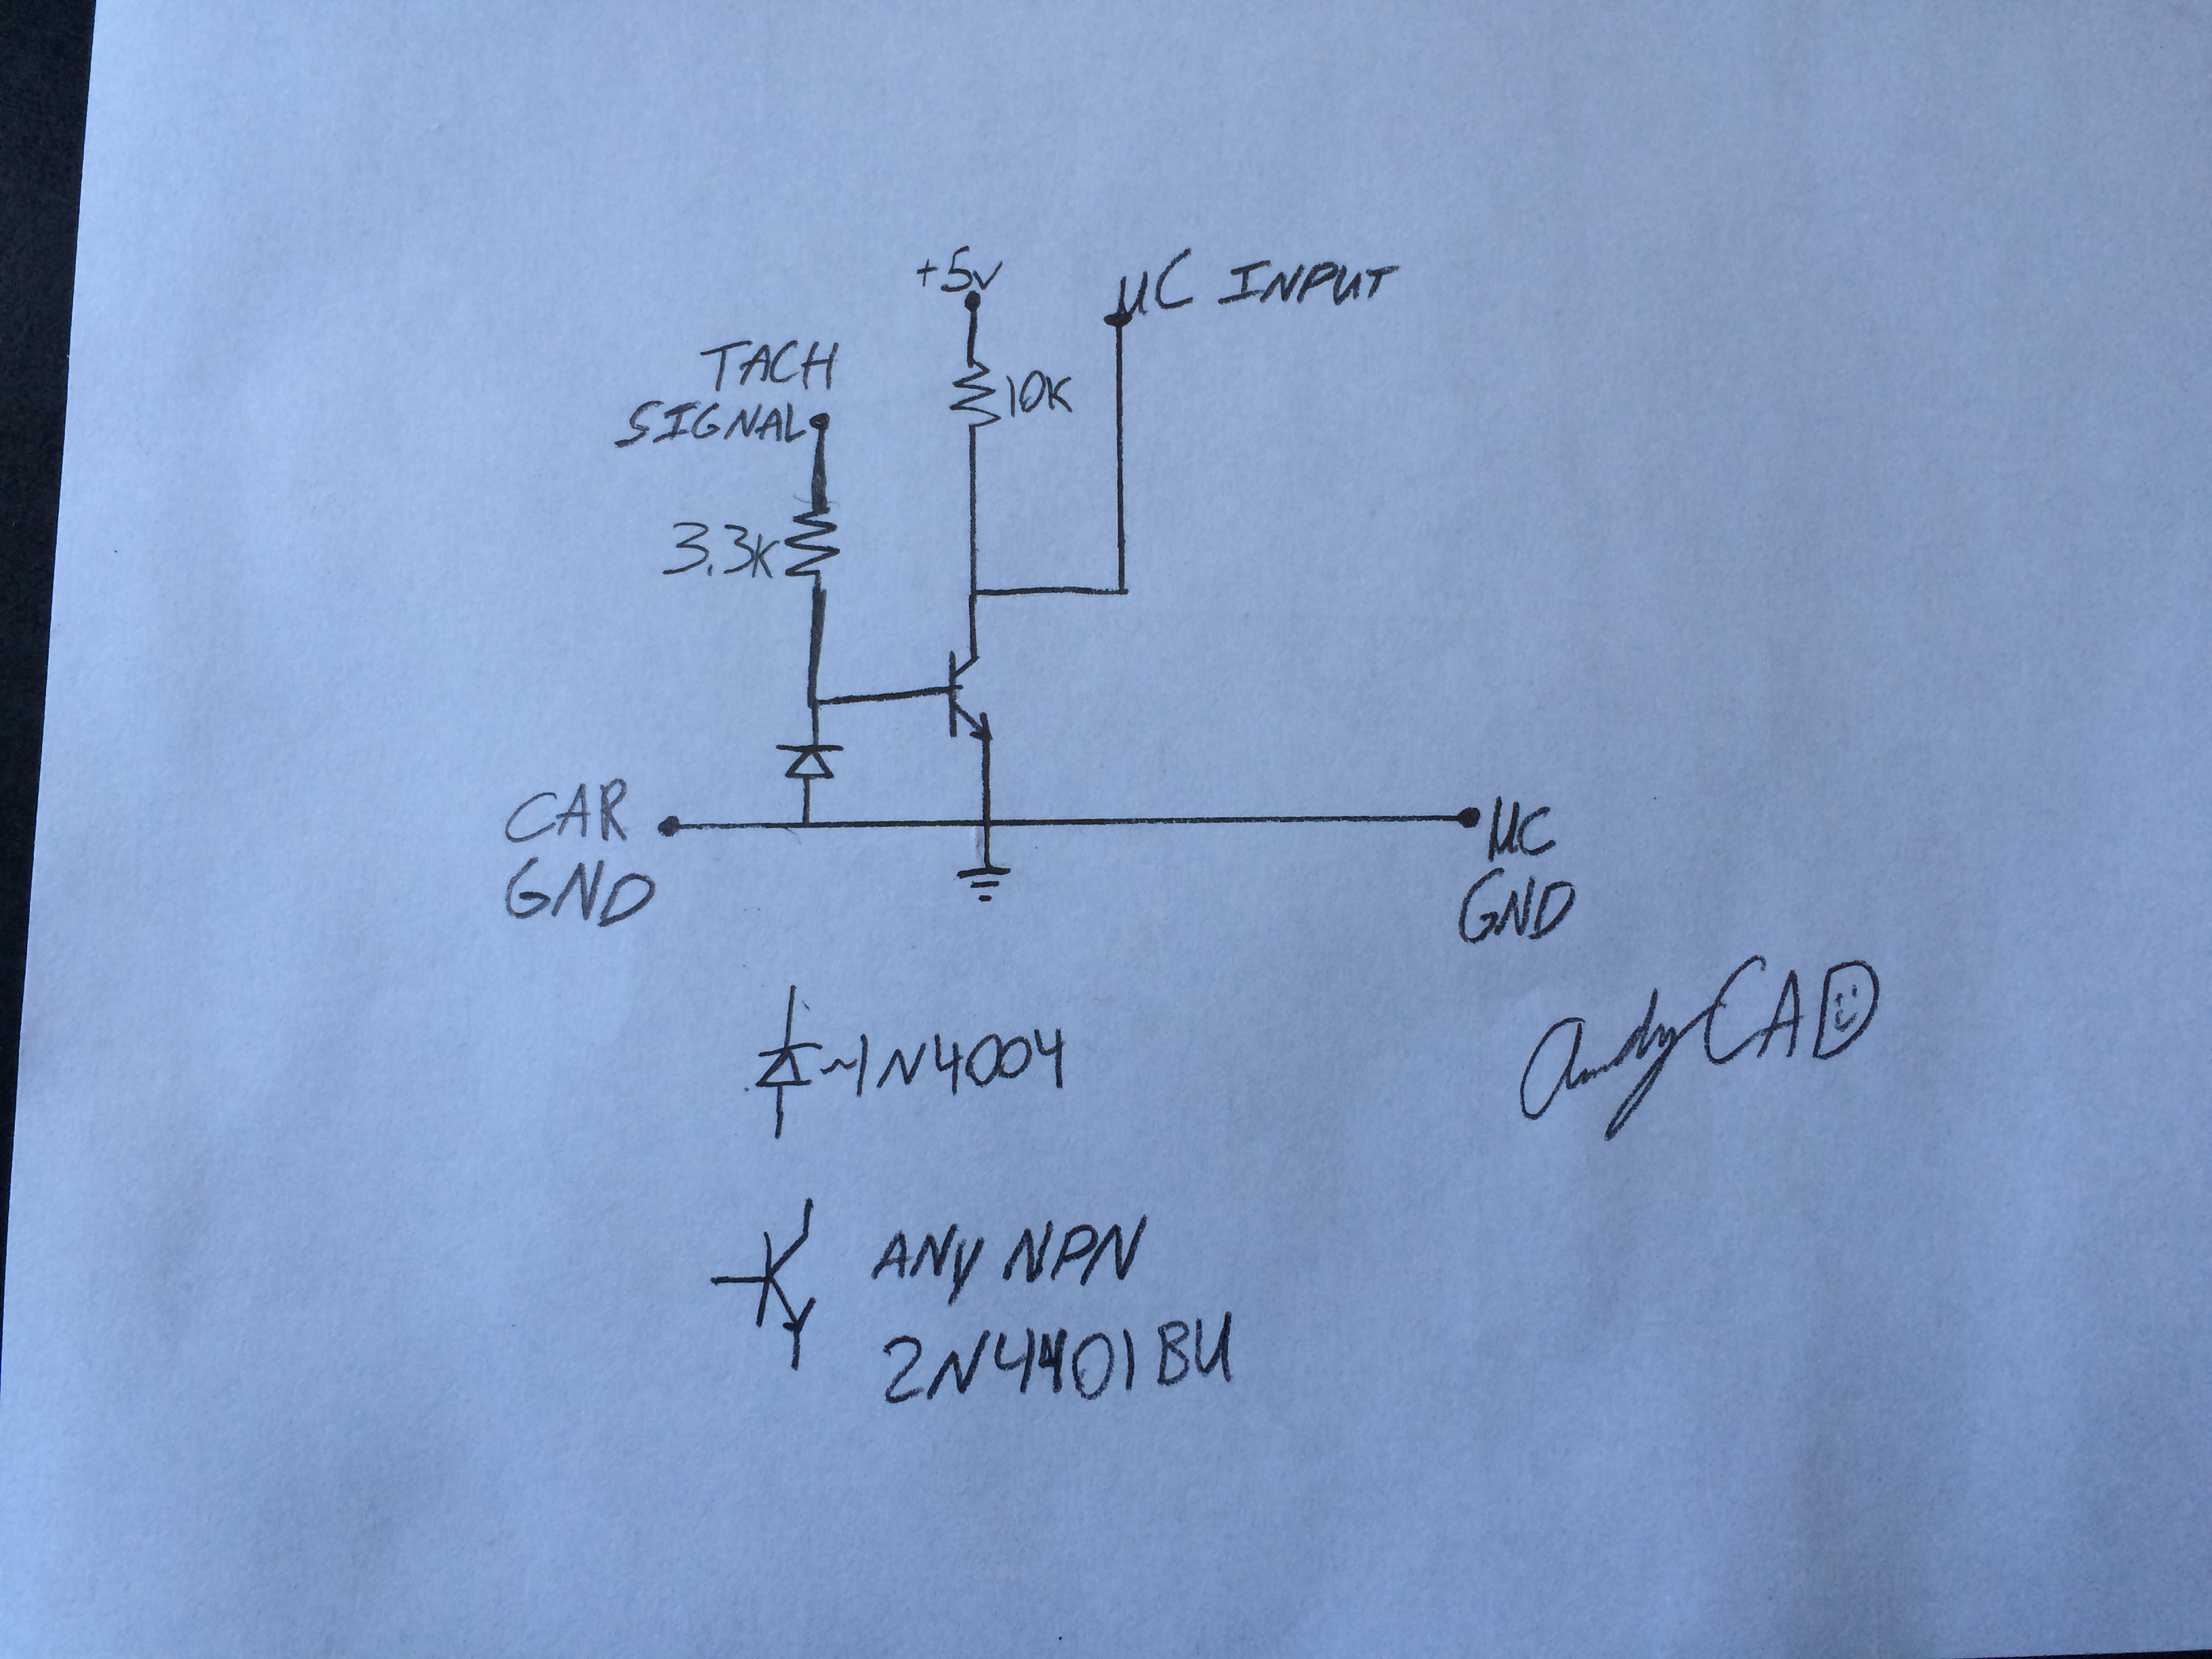 +5v
µC INPUT
TACH
SIGNAL
10K
3.3K
CAR
GND
µC
GND
1N4004
andyCAD
ANY NPN
2N4401BU